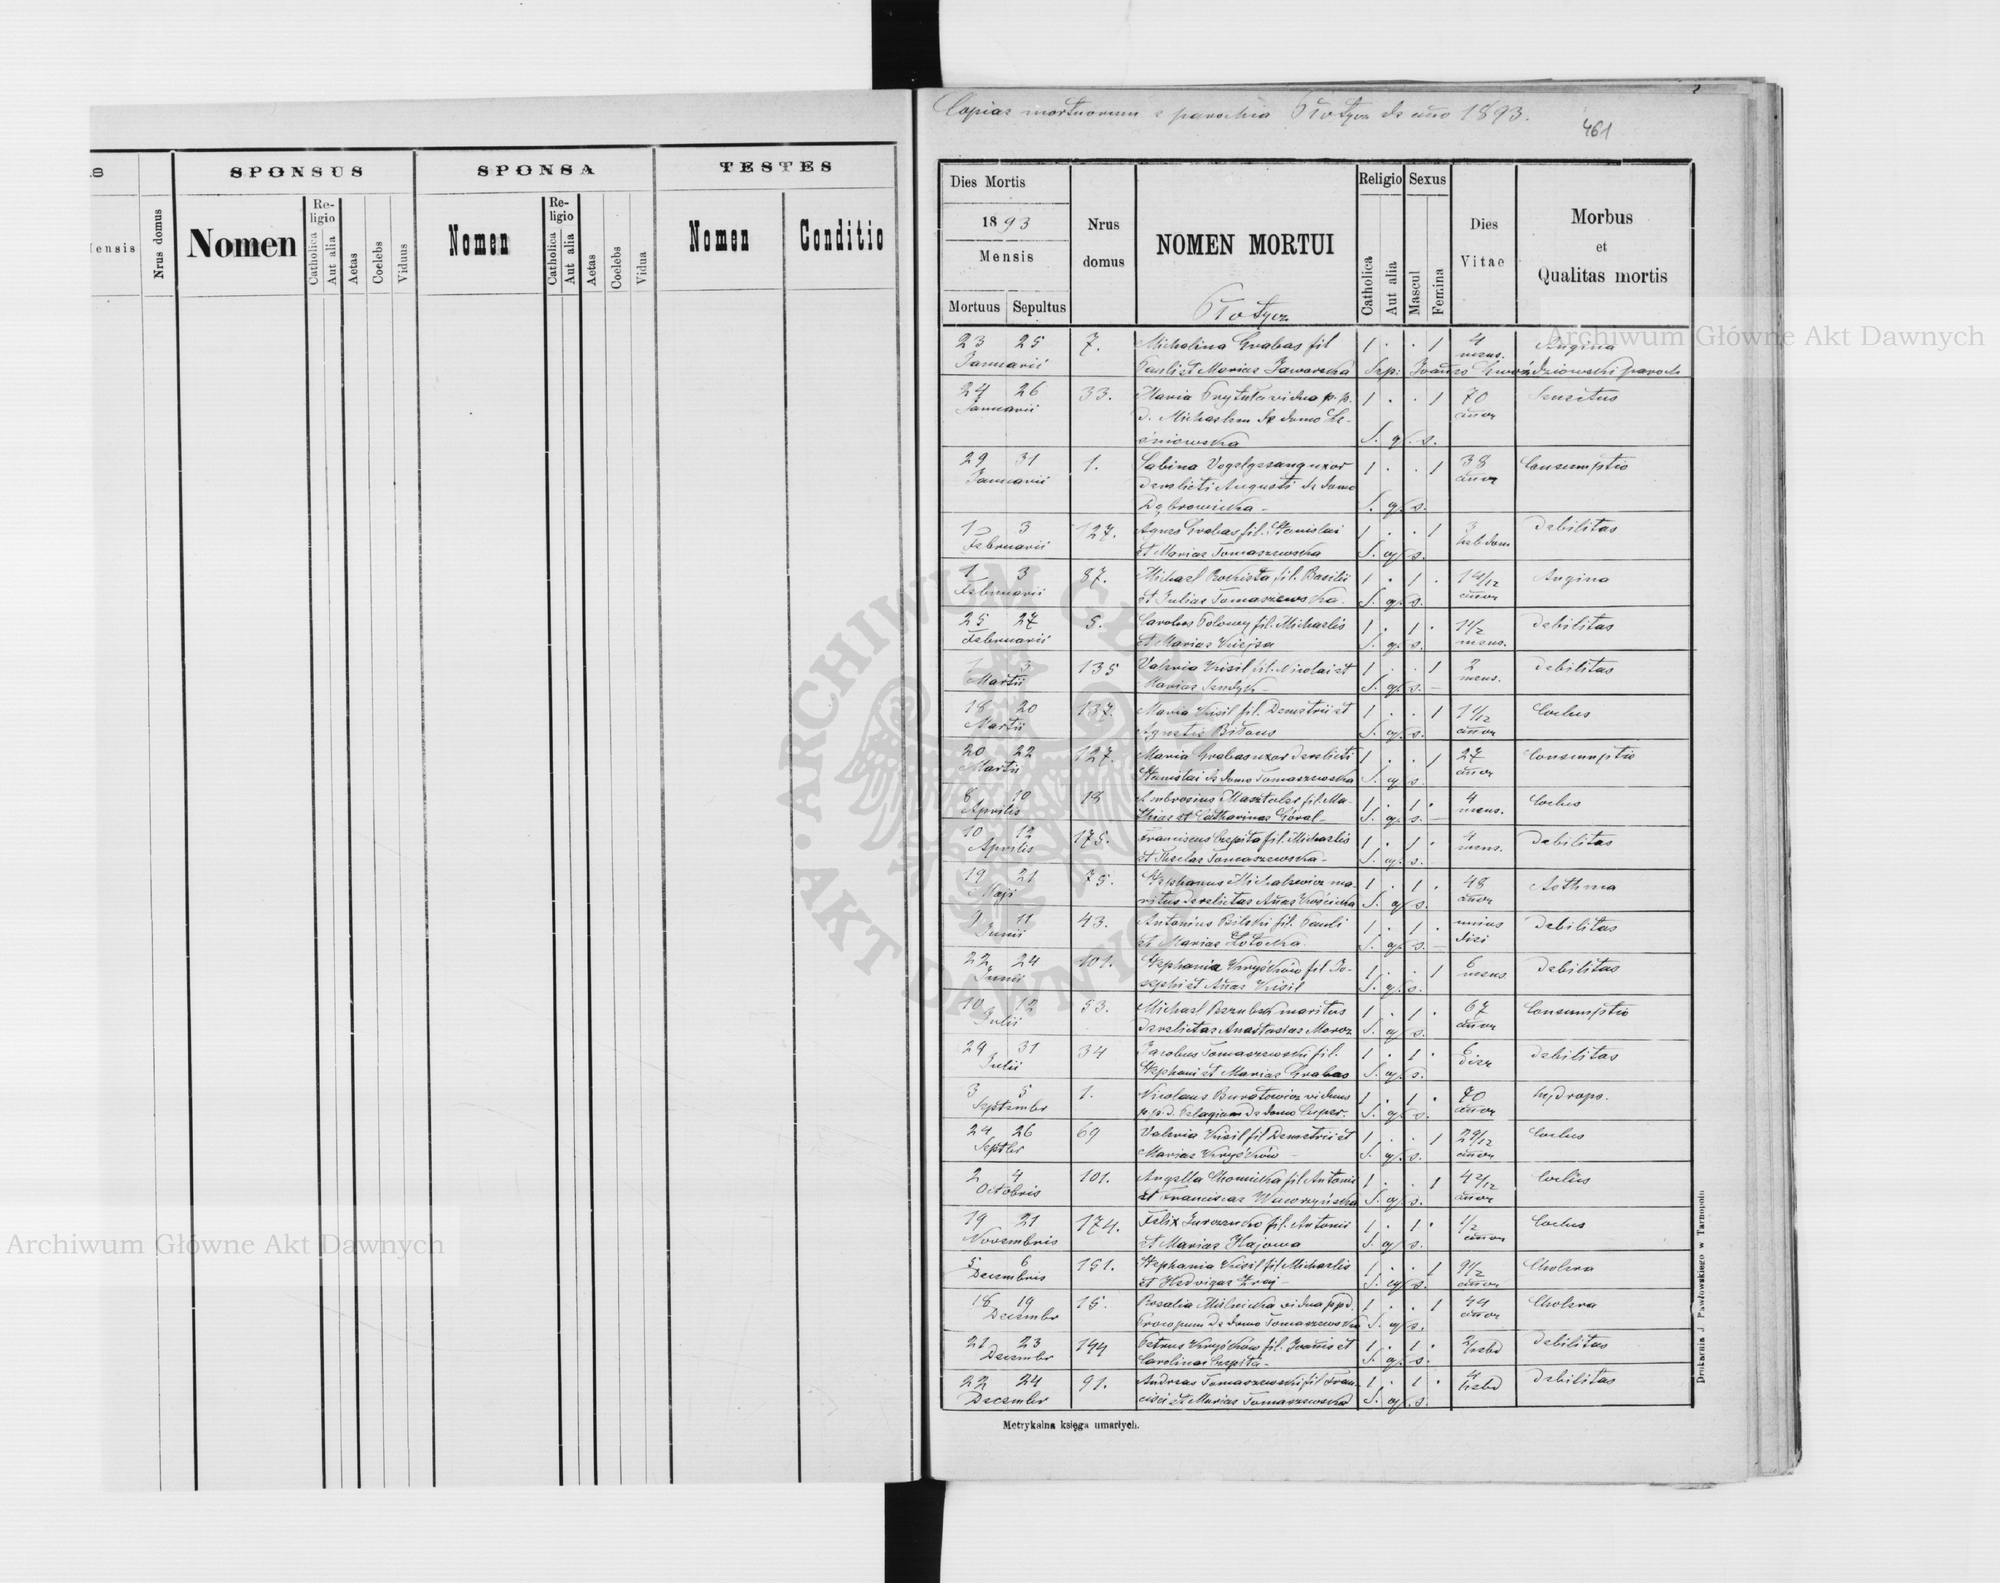 SPONSUS
SPONSA
TESTES
ensis
Nrus domus
Nomen
Re-
ligio
Catholica
Aut alia
Aetas
Coelebs
Viduus
Nomen
Re-
ligio
Catholica
Aut alia
Aetas
Coelebs
Vidua
Nomen
Conditio
Copiae mortuorum e parochia Płotycz de año 1893.
461
Dies Mortis
1893
Mensis
Mortuus Sepultus
Nrus
domus
NOMEN MORTUI
Płotycz
Religio
Catholica
Aut alia
Sexus
Mascul
Femina
Dies
Vitae
Morbus
et
Qualitas mortis
23 25 7. Michalina Grabas fil 1 . . 1 4 Angina
Januarii Pauli et Mariae Jaworska Sep: mens. paroch
24 26 33. Maria vidua p. p. 1 . . 1 70
Januarii d. Michaelem de domo Le- añor
śniowska S. q. s.
29 31 1. Sabina Vogelgesang uxor 1 . . 1 38 Consumptio
Januarii derelicti Augusti de domo añor
Dąbrowicka S. q. s.
1 3 127. Agnes Grabas fil. Stanislai 1 . . 1 3 Debilitas
Februarii et Mariae Tomaszewska S. q. s. hebdom
1 3 87. Michael Rokista fil. Basilii 1 . 1 . 1 4/12 Angina
Februarii et Juliae Tomaszewska S. q. s. añor
25 27 5. Carolus Polowy fil. Michaelis 1 . 1 . 1 1/2 Debilitas
Februarii et Mariae S. q. s. mens.
1 3 135 Valeria Kisil fil. Nicolai et 1 . . 1 2 Debilitas
Martii Mariae S. q. s. mens.
18 20 137. Maria Kisil fil. Demetrii et 1 . . 1 Coelus
Martii Agnetis S. q. s. añor
20 22 127. Maria Grabas uxor derelicti 1 . . 1 27 Consumptio
Martii Stanislai de domo Tomaszewska S. q. s. añor
8 10 18 Ambrosius Masztaler fil. Ma- 1 . 1 . 4 Coelus
Aprilis thiae et Catharinae Góral S. q. s. mens.
10 12 175. Franciscus Czepita fil. Michaelis 1 . 1 . 4 Debilitas
Aprilis et Theclae Tomaszewska S. q. s. mens.
19 21 75. Stephanus Michalewicz ma- 1 . 1 . 48 Asthma
Maji ritus derelictae Añae Kościcka S. q. s. añor
9 11 43. Antonius Bilski fil. Pauli 1 . 1 . unius Debilitas
Junii et Mariae Zołocka S. q. s. diei
22 24 101. Stephania Kryśków fil Jo- 1 . . 1 6 Debilitas
Junii sephi et Añae Kisil S. q. s. mens.
10 12 53. Michael maritus 1 . 1 . 67 Consumptio
Julii derelictae Anastasiae Moroz S. q. s. añor
29 31 34 Jacobus Tomaszewski fil. 1 . 1 . 6 Debilitas
Julii Stephani et Mariae Grabas S. q. s. dier
3 5 1. Nicolaus Buratowicz viduus 1 . 1 . 70 hydrops.
Septembr p. p. d. Pelagiam de domo S. q. s. añor
24 26 69 Valeria Kisil fil Demetrii et 1 . . 1 2 9/12 Coelus
Septbr Mariae Kryśków S. q. s. añor
2 4 101. Angella Chomicka fil Antonii 1 . . 1 4 2/12 Coelus
Octobris et Franciscae Waworzyńska S. q. s. añor
19 21 174. Felix fil. Antonii 1 . 1 . 1/2 Coelus
Novembris et Mariae Hajowa S. q. s. añor
5 6 151. Stephania Kisil fil Michaelis 1 . . 1 9 1/2 Cholera
Decembris et Hedvigae Kraj S. q. s. añor
18 19 15. Rosalia Mielnicka vidua p p d. 1 . . 1 44 Cholera
Decembr Procopium de domo Tomaszewska S. q. s. añor
21 23 194 Petrus Kryśków fil. Joañis et 1 . 1 . 2 Debilitas
Decembr Carolinae Czepita S. q. s. hebd
22 24 91. Andreas Tomaszewski fil Fran- 1 . 1 . 4 Debilitas
Decembr cisci et Mariae Tomaszewska S. q. s. hebd
Metrykalna księga umarłych.
Drukarnia J. Pawłowskiego w Tarnopolu
Archiwum Główne Akt Dawnych
Archiwum Główne Akt Dawnych
ARCHIWUM GŁÓWNE AKT DAWNYCH